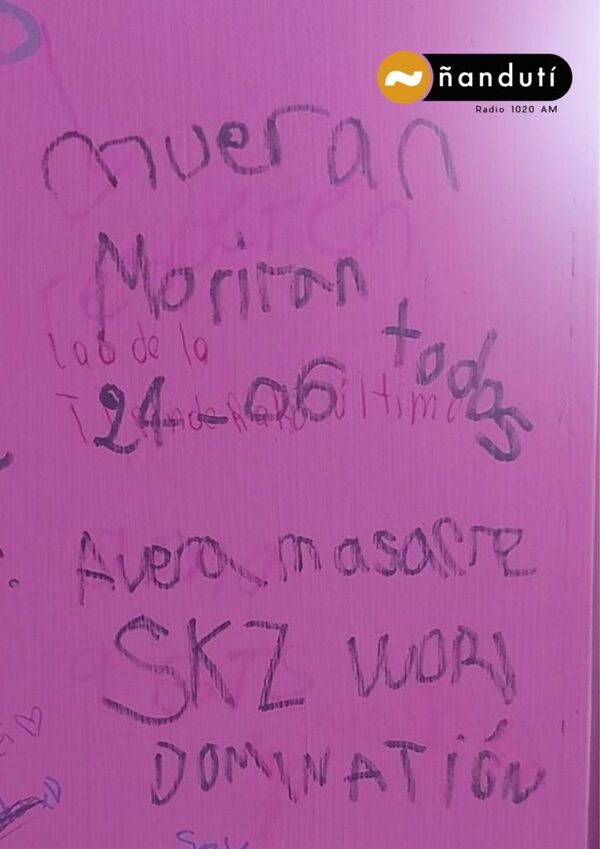 ñandutí
Radio 1020 AM
mueran
Moriran
todas
lao de la
24-06
último
Avera masacre
SKZ WORD
DOMINATIÓN